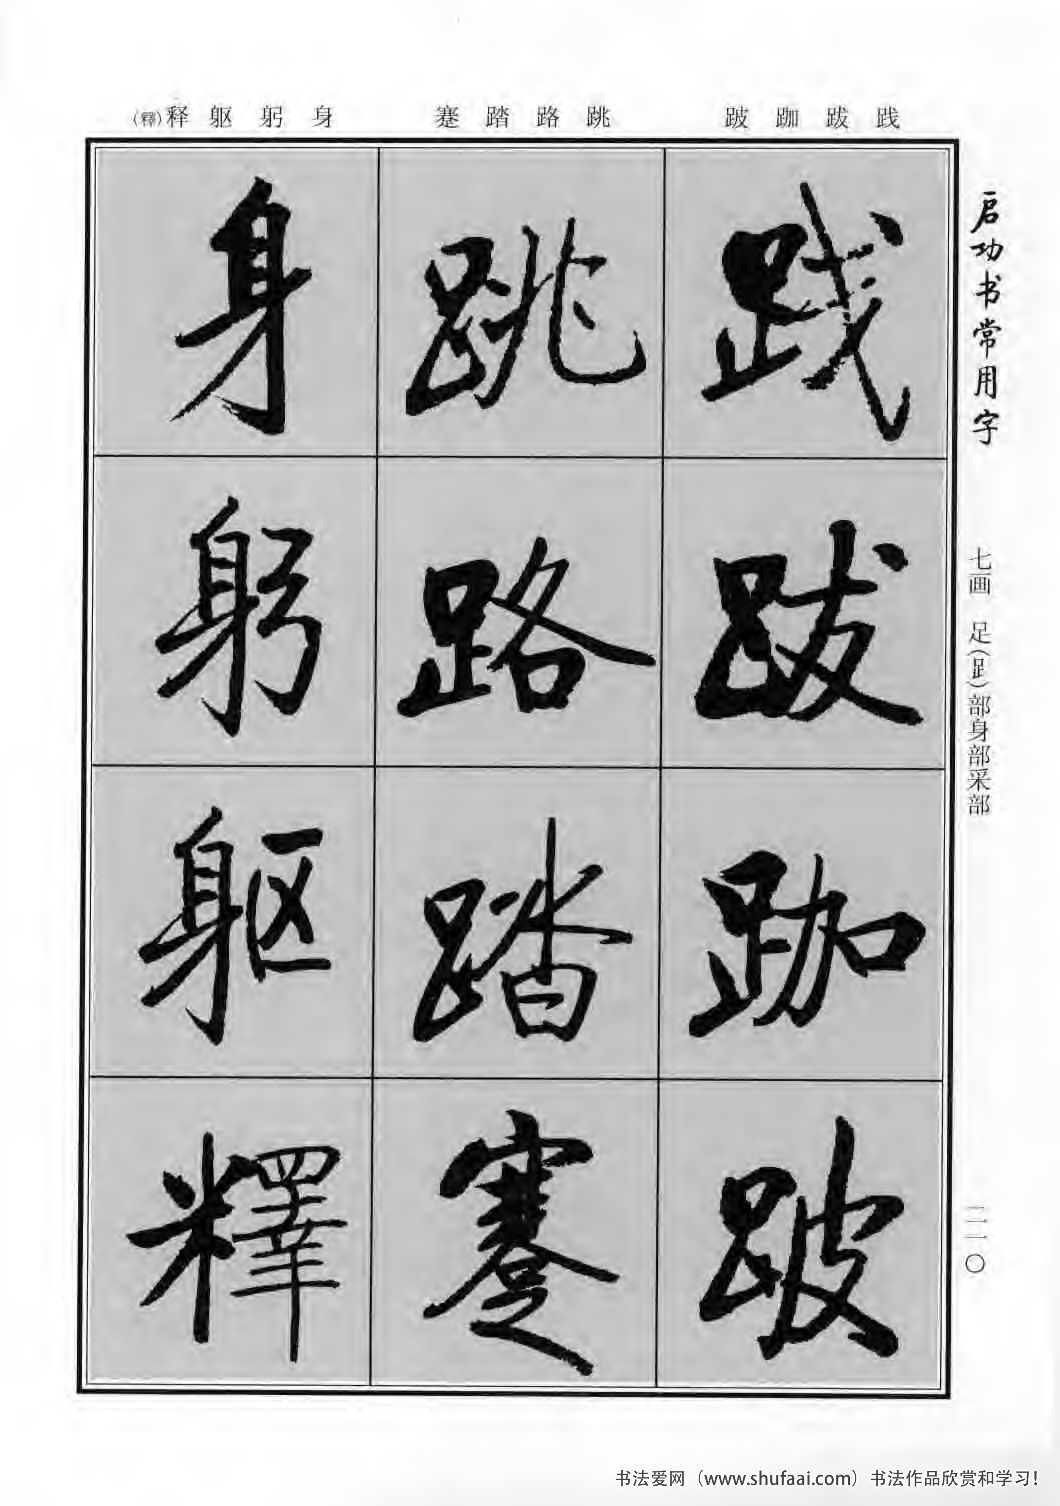 践跋跏跛
跳路踏蹇
身躬躯释(釋)
践
跋
跏
跛
跳
路
踏
蹇
身
躬
躯
釋
启功书常用字
七画 足(𧾷)部身部采部
二一〇
书法爱网（www.shufaai.com）书法作品欣赏和学习！